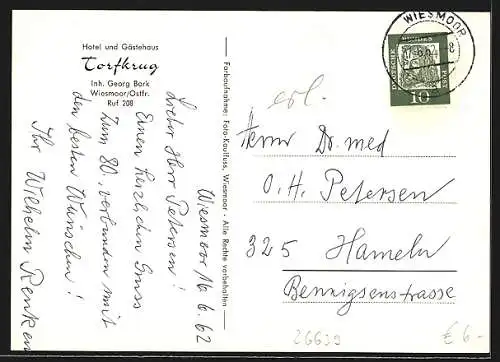 Hotel und Gästehaus
Torfkrug
Inh. Georg Bork
Wiesmoor/Ostfr.
Ruf 208
Wiesmoor 16.6.62
Lieber Herr Petersen!
Einen herzlichen Gruss
zum 80., verbunden mit
den besten Wünschen!
Ihr Wilhelm Renken
Farbaufnahme: Foto-Kaulfuss, Wiesmoor - Alle Rechte vorbehalten
WIESMOOR
DEUTSCHE BUNDESPOST
10
erl.
Herrn Dr. med
O. H. Petersen
325 Hameln
Bennigsenstrasse
26639
€ 6-